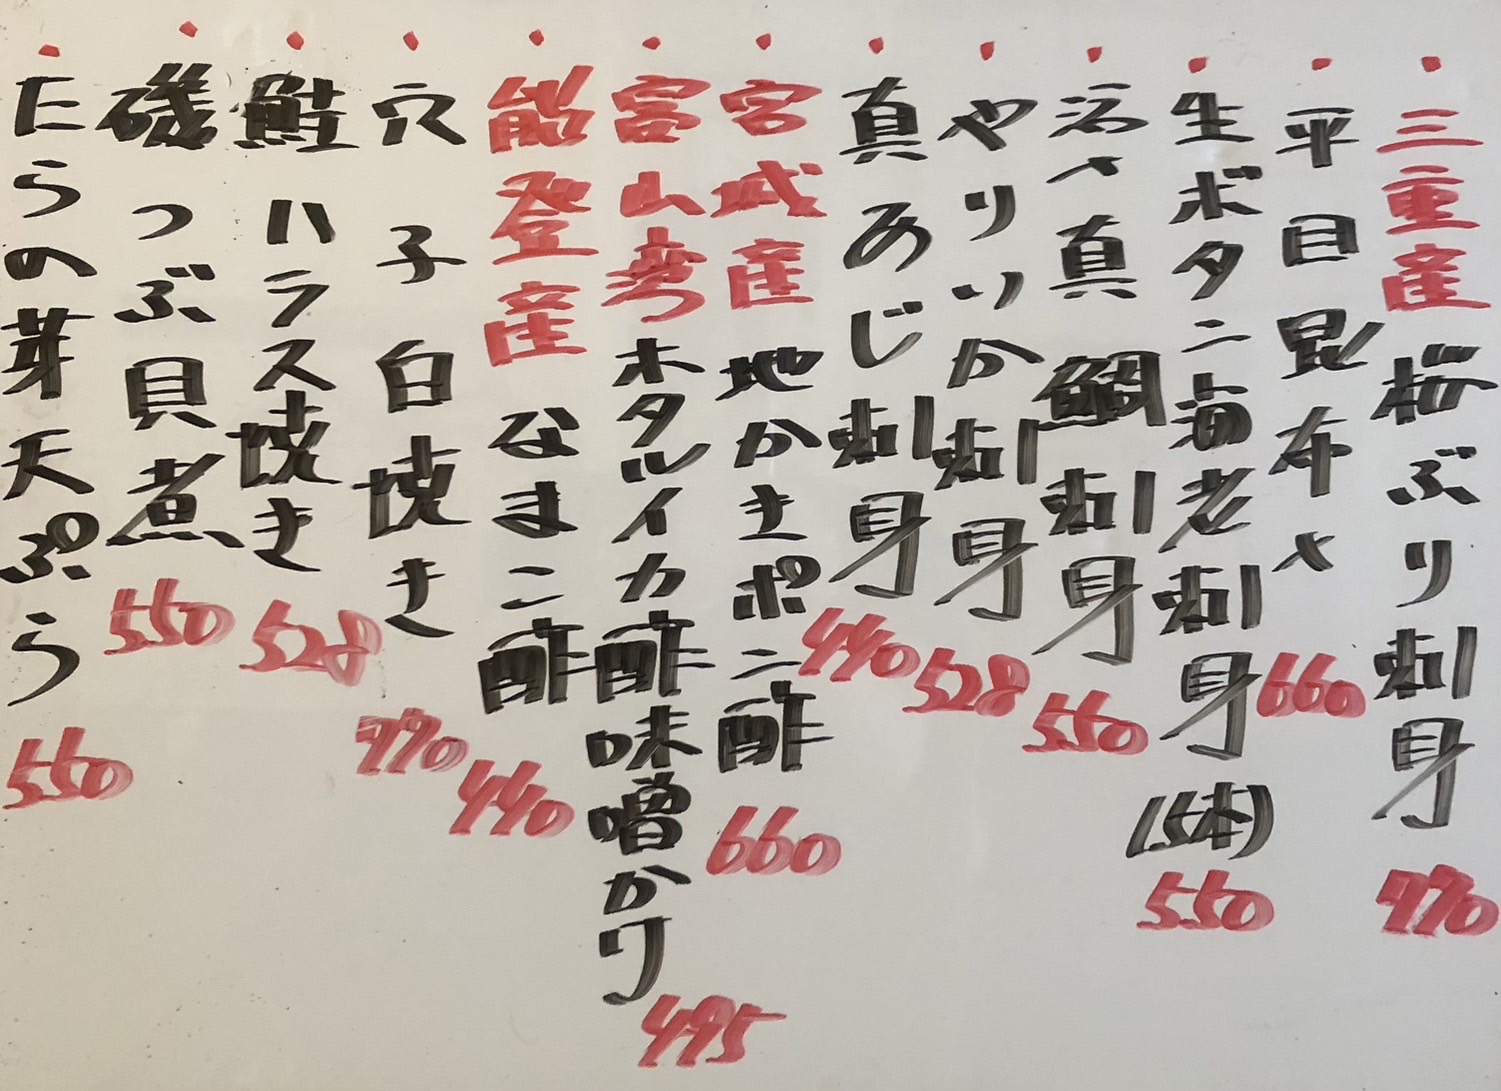 三重産桜ぶり刺身 770
平目昆布〆 660
生ボタン海老刺身(5本) 550
活〆真鯛刺身 550
やりいか刺身 528
真あじ刺身 440
宮城産地かきポン酢 660
富山湾ホタルイカ酢味噌かけ 495
能登産なまこ酢 440
穴子白焼き 770
鮭ハラス焼き 528
磯つぶ貝煮 550
たらの芽天ぷら 550